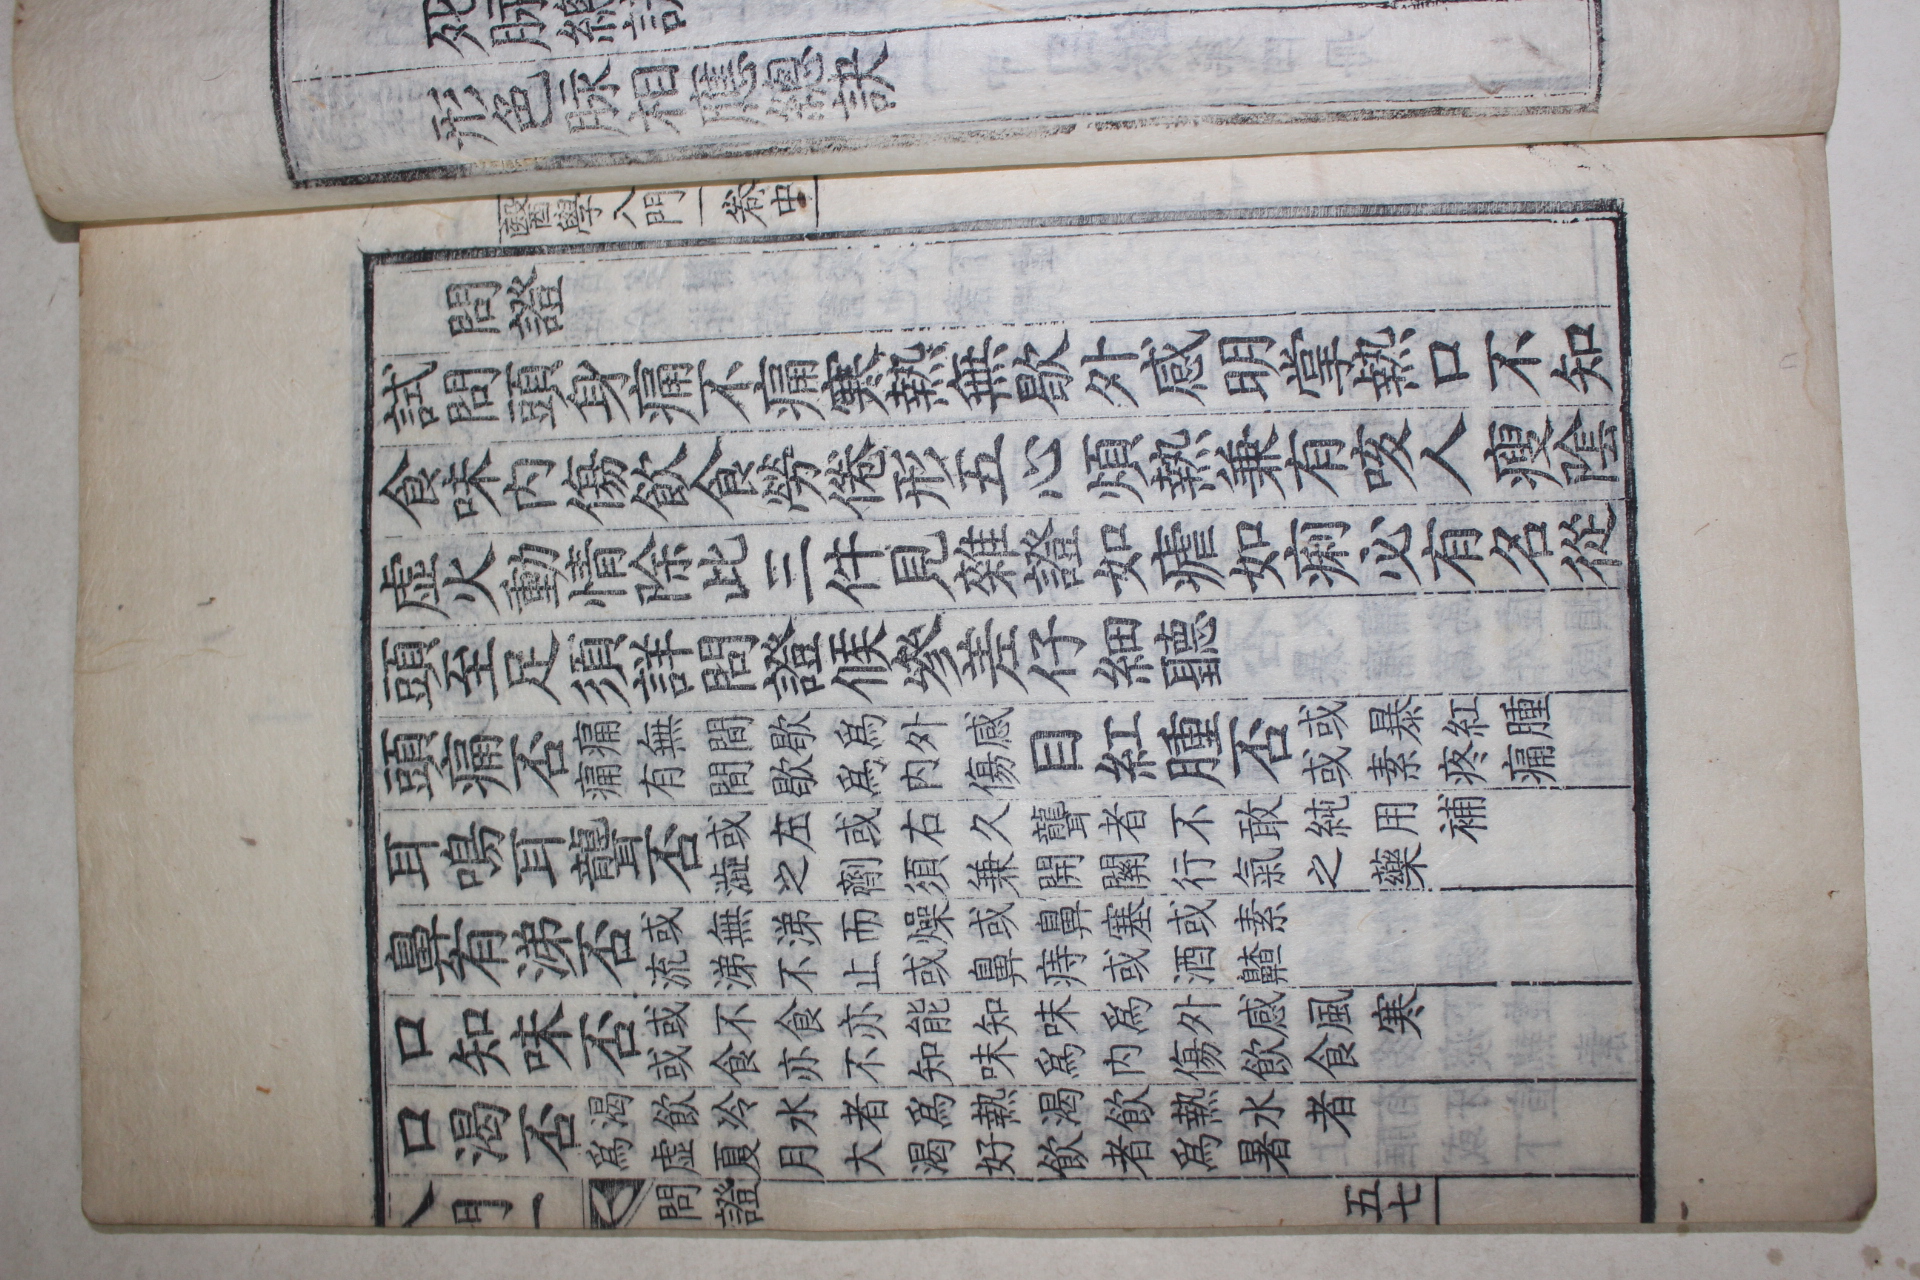 死脉總訣
形色脉相應總訣
醫學入門一卷中
問證
試問頭身痛不痛寒熱無歇外感明掌熱口不知
食味内傷飲食勞倦形五心煩熱兼有咳人瘦陰
虛火動情除此三件見雜證如瘧如痢必有名從
頭至足須詳問證候參差仔細聽
頭痛否痛無間歇爲外感痛有間歇爲内傷目紅腫否或暴紅腫或素疼痛
耳鳴耳聾否或左或右久聾者不敢純用補澁之劑須兼開關行氣之藥
鼻有涕否或無涕而燥或鼻塞或素流涕不止或鼻痔或酒齇
口知味否或不食亦能知味爲外感風寒或食亦不知味爲内傷飲食
口渴否渴飲冷水者爲熱渴飲熱水者爲虛夏月大渴好飲者爲暑
入門一 問證 五七